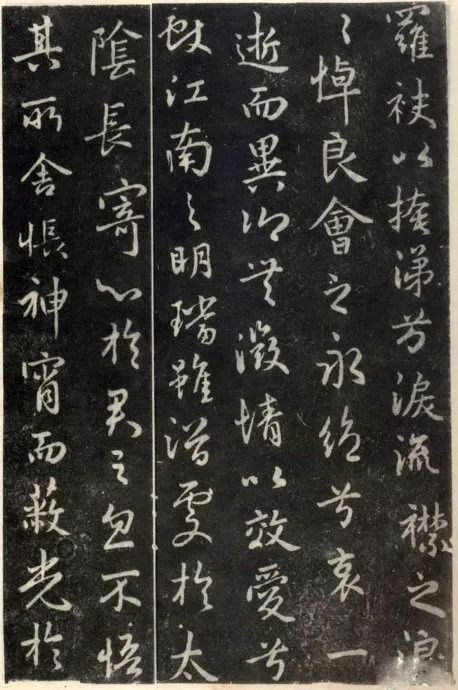 羅袂以掩涕兮淚流襟之浪
々悼良會之永絕兮哀一
逝而異鄉無微情以效愛兮
獻江南之明璫雖潛處於太
陰長寄心於君王忽不悟
其所舍悵神宵而蔽光於